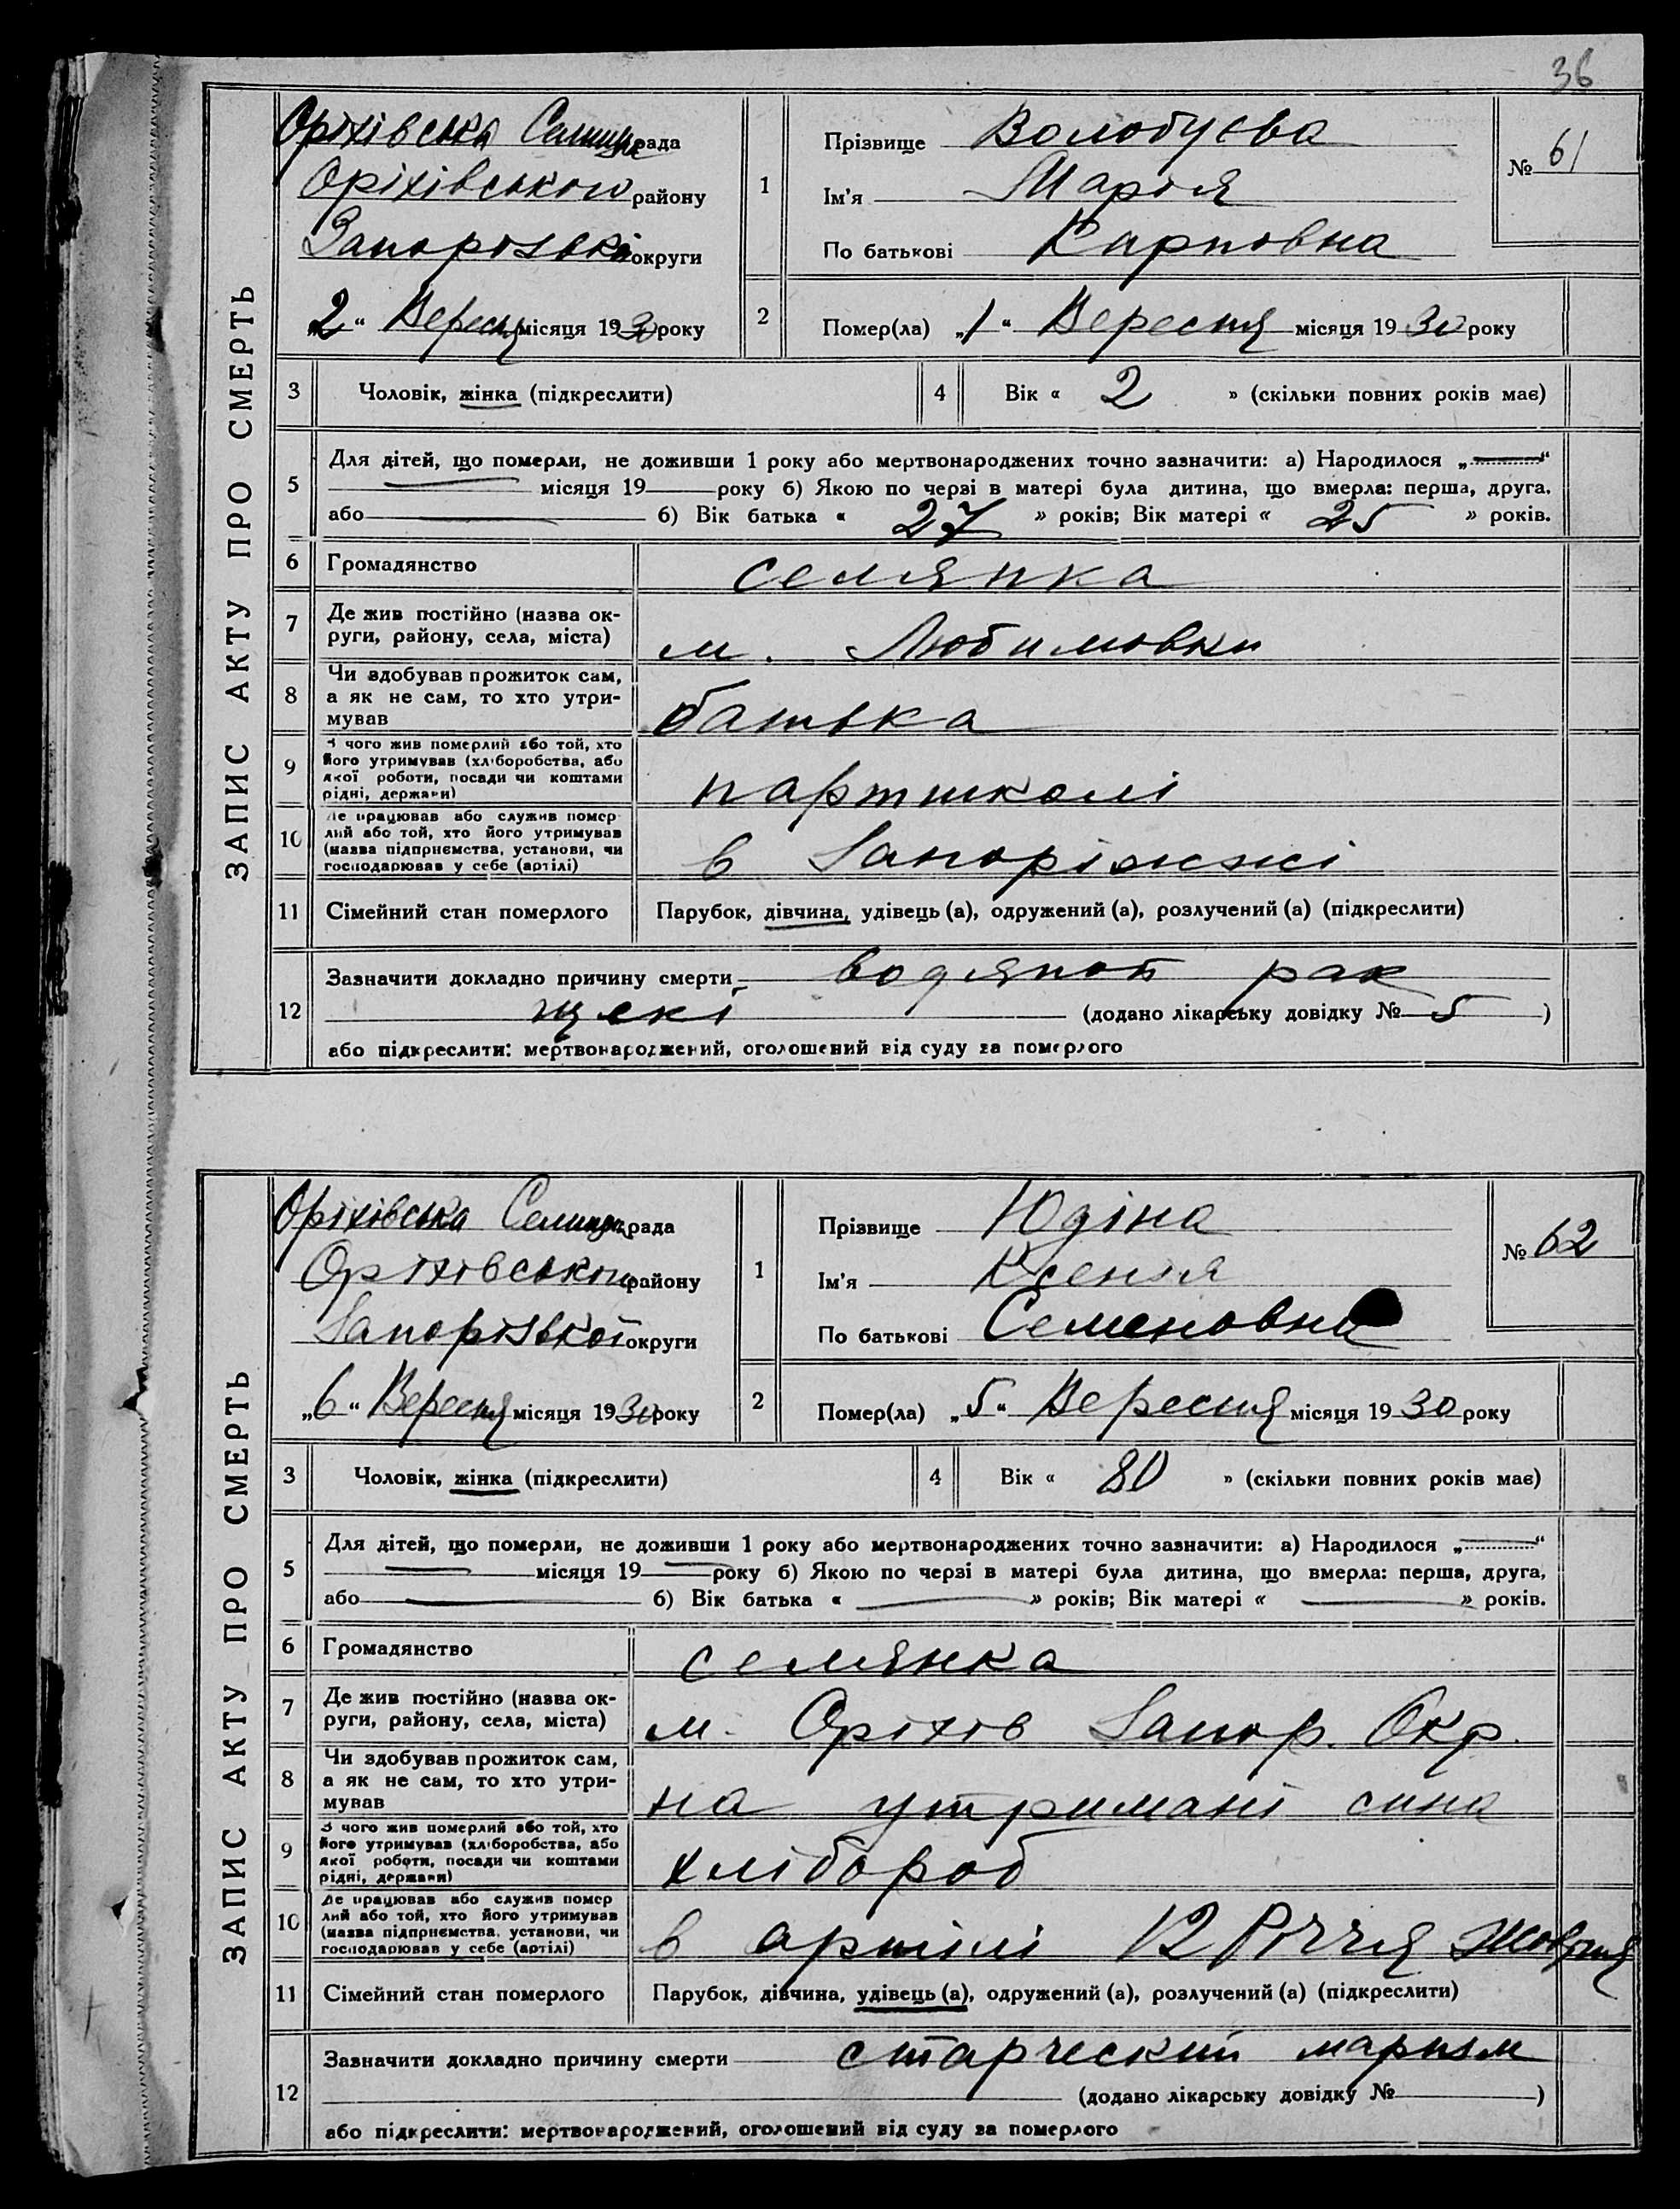 36
ЗАПИС АКТУ ПРО СМЕРТЬ
Оріхівська Селищна рада
Оріхівського району
Запорізької округи
„2“ Вересня місяця 1930 року
1
Прізвище Волобуєва
Ім'я Марія
По батькові Карповна
№ 61
2
Помер(ла) „1“ Вересня місяця 1930 року
3 Чоловік, жінка (підкреслити)
4 Вік « 2 » (скільки повних років має)
5 Для дітей, що померли, не доживши 1 року або мертвонароджених точно зазначити: а) Народилося „ “
місяця 19 року б) Якою по черзі в матері була дитина, що вмерла: перша, друга.
або б) Вік батька « 27 » років; Вік матері « 25 » років.
6 Громадянство селянка
7 Де жив постійно (назва ок-
руги, району, села, міста) м. Любимовки
8 Чи здобував прожиток сам,
а як не сам, то хто утри-
мував батька
9 З чого жив померлий або той, хто
його утримував (хліборобства, або
якої роботи, посади чи коштами
рідні, держави) партшколі
10 Де працював або служив помер-
лий або той, хто його утримував
(назва підприємства, установи, чи
господарював у себе (артілі) в Запоріжжі
11 Сімейний стан померлого Парубок, дівчина, удівець (а), одружений (а), розлучений (а) (підкреслити)
12 Зазначити докладно причину смерти водяной рак
щекі (додано лікарську довідку № 5 )
або підкреслити: мертвонароджений, оголошений від суду за померлого
ЗАПИС АКТУ ПРО СМЕРТЬ
Оріхівська Селищна рада
Оріхівського району
Запорізької округи
„6“ Вересня місяця 1930 року
1
Прізвище Юдіна
Ім'я Ксенія
По батькові Семеновна
№ 62
2
Помер(ла) „5“ Вересня місяця 1930 року
3 Чоловік, жінка (підкреслити)
4 Вік « 80 » (скільки повних років має)
5 Для дітей, що померли, не доживши 1 року або мертвонароджених точно зазначити: а) Народилося „ “
місяця 19 року б) Якою по черзі в матері була дитина, що вмерла: перша, друга,
або б) Вік батька « » років; Вік матері « » років.
6 Громадянство селянка
7 Де жив постійно (назва ок-
руги, району, села, міста) м. Оріхів Запор. Окр.
8 Чи здобував прожиток сам,
а як не сам, то хто утри-
мував на утримані сина
9 З чого жив померлий або той, хто
його утримував (хліборобства, або
якої роботи, посади чи коштами
рідні, держави) хлібороб
10 Де працював або служив помер
лий або той, хто його утримував
(назва підприємства, установи, чи
господарював у себе (артілі) в артілі 12 Річчя Жовтня
11 Сімейний стан померлого Парубок, дівчина, удівець (а), одружений (а), розлучений (а) (підкреслити)
12 Зазначити докладно причину смерти старческий маризм
(додано лікарську довідку № )
або підкреслити: мертвонароджений, оголошений від суду за померлого